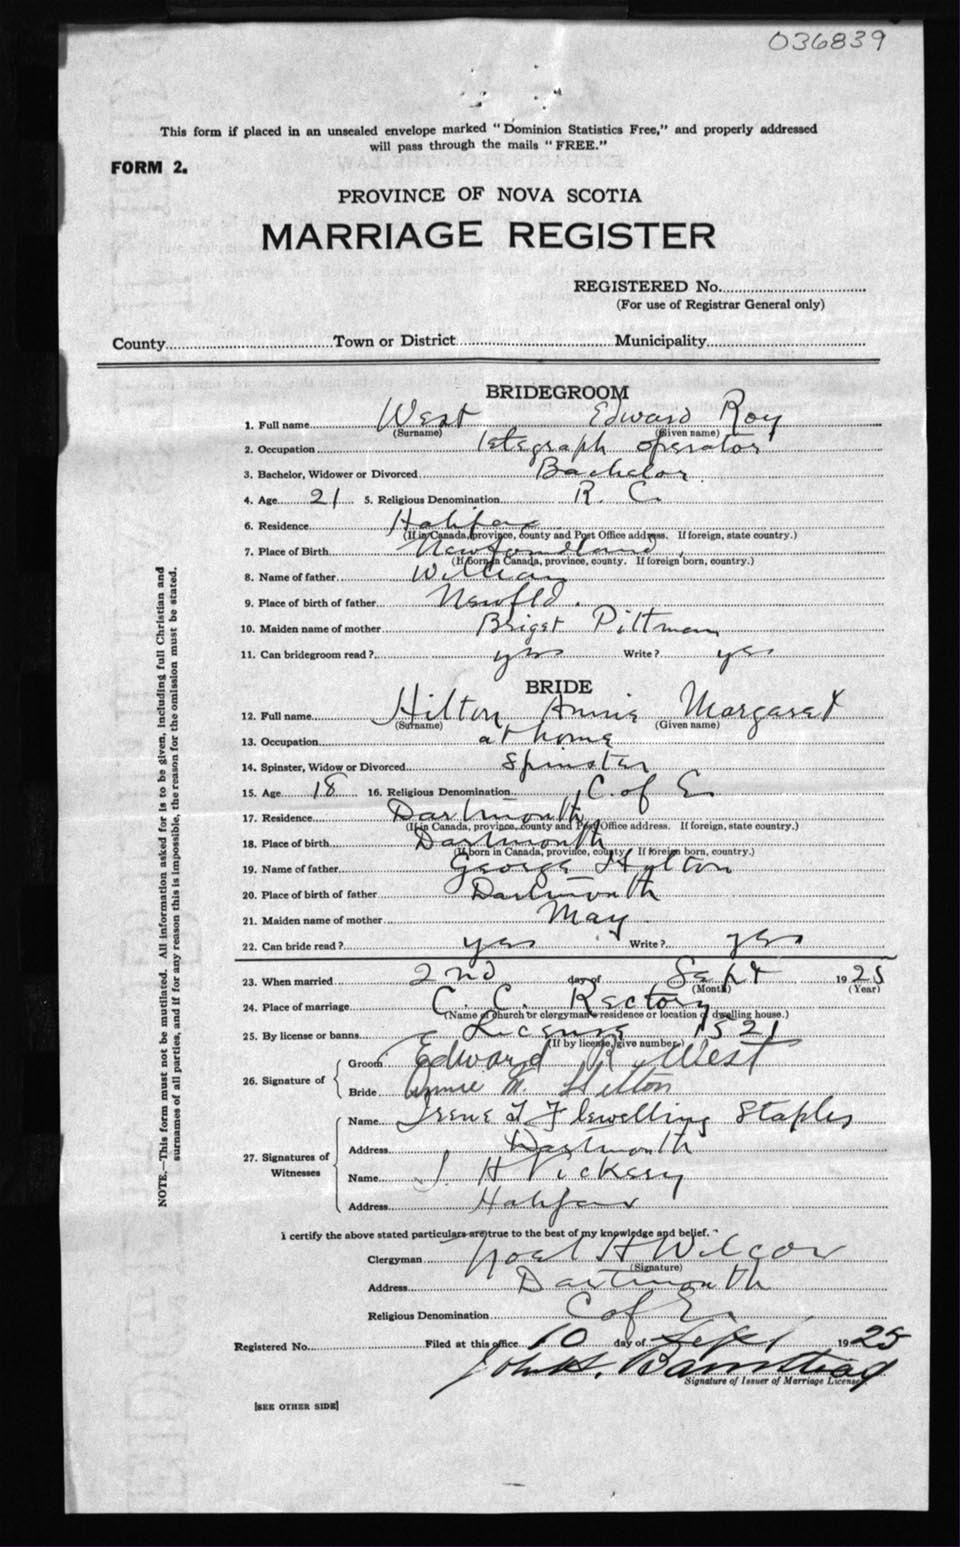 036839
This form if placed in an unsealed envelope marked "Dominion Statistics Free," and properly addressed
will pass through the mails "FREE."
FORM 2.
PROVINCE OF NOVA SCOTIA
MARRIAGE REGISTER
REGISTERED No.
(For use of Registrar General only)
County Town or District Municipality
BRIDEGROOM
1. Full name West Edward Roy
(Surname) (Given name)
2. Occupation Telegraph operator
3. Bachelor, Widower or Divorced Bachelor
4. Age 21 5. Religious Denomination R. C.
6. Residence Halifax
(If in Canada, province, county and Post Office address. If foreign, state country.)
7. Place of Birth Newfoundland
(If born in Canada, province, county. If foreign born, country.)
8. Name of father William
9. Place of birth of father Newfld.
10. Maiden name of mother Briget Pittman
11. Can bridegroom read? yes Write? yes
BRIDE
12. Full name Hilton Annie Margaret
(Surname) (Given name)
13. Occupation at home
14. Spinster, Widow or Divorced Spinster
15. Age 18 16. Religious Denomination C. of E.
17. Residence Dartmouth
(If in Canada, province, county and Post Office address. If foreign, state country.)
18. Place of birth Dartmouth
(If born in Canada, province, county. If foreign born, country.)
19. Name of father George Hilton
20. Place of birth of father Dartmouth
21. Maiden name of mother May
22. Can bride read? yes Write? yes
23. When married 2nd day of Sept 1925
(Month) (Year)
24. Place of marriage C. C. Rectory
(Name of church or clergyman's residence or location of dwelling house.)
25. By license or banns License 1521
(If by license, give number)
26. Signature of Groom Edward R. West
Bride Annie M. Hilton
27. Signatures of Witnesses Name Irene T Flewelling Staples
Address Dartmouth
Name J. H Vickery
Address Halifax
I certify the above stated particulars are true to the best of my knowledge and belief.
Clergyman Noel H Wilcox
(Signature)
Address Dartmouth
Religious Denomination C of E.
Registered No. Filed at this office 10 day of Sept 1925
John H. Bamstead
Signature of Issuer of Marriage License
[SEE OTHER SIDE]
NOTE.—This form must not be mutilated. All information asked for is to be given, including full Christian and
surnames of all parties, and if for any reason this is impossible, the reason for the omission must be stated.